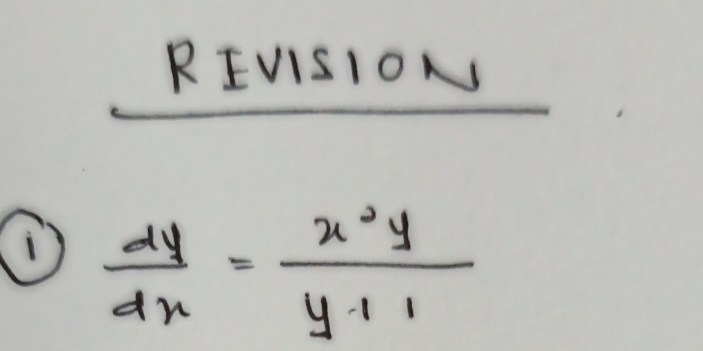 REVISION
① dy/dx = x²y / y+1